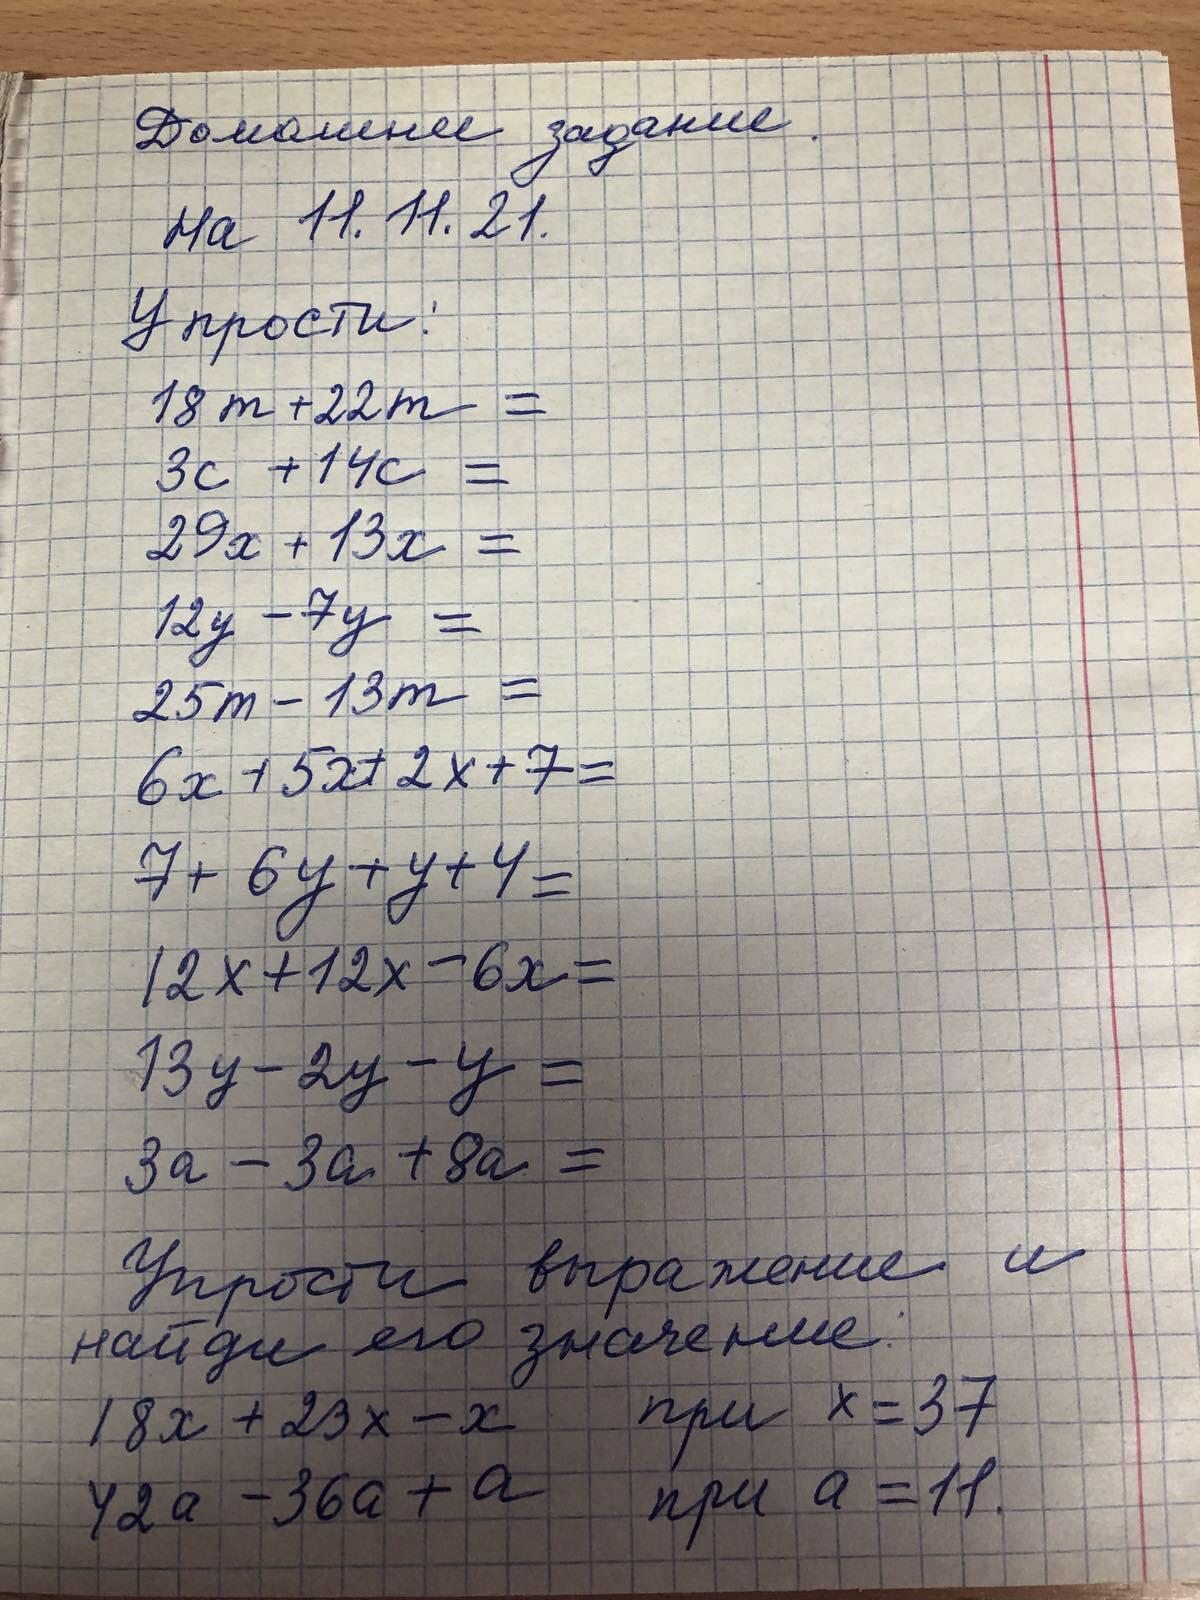 Домашнее задание.
На 11.11.21.
Упрости:
18m+22m =
3c +14c =
29x + 13x =
12y - 7y =
25m - 13m =
6x + 5x + 2x + 7 =
7 + 6y + y + 4 =
12x + 12x - 6x =
13y - 2y - y =
3a - 3a + 8a =
Упрости выражение и
найди его значение:
18x + 23x - x при x = 37
42a - 36a + a при a = 11.